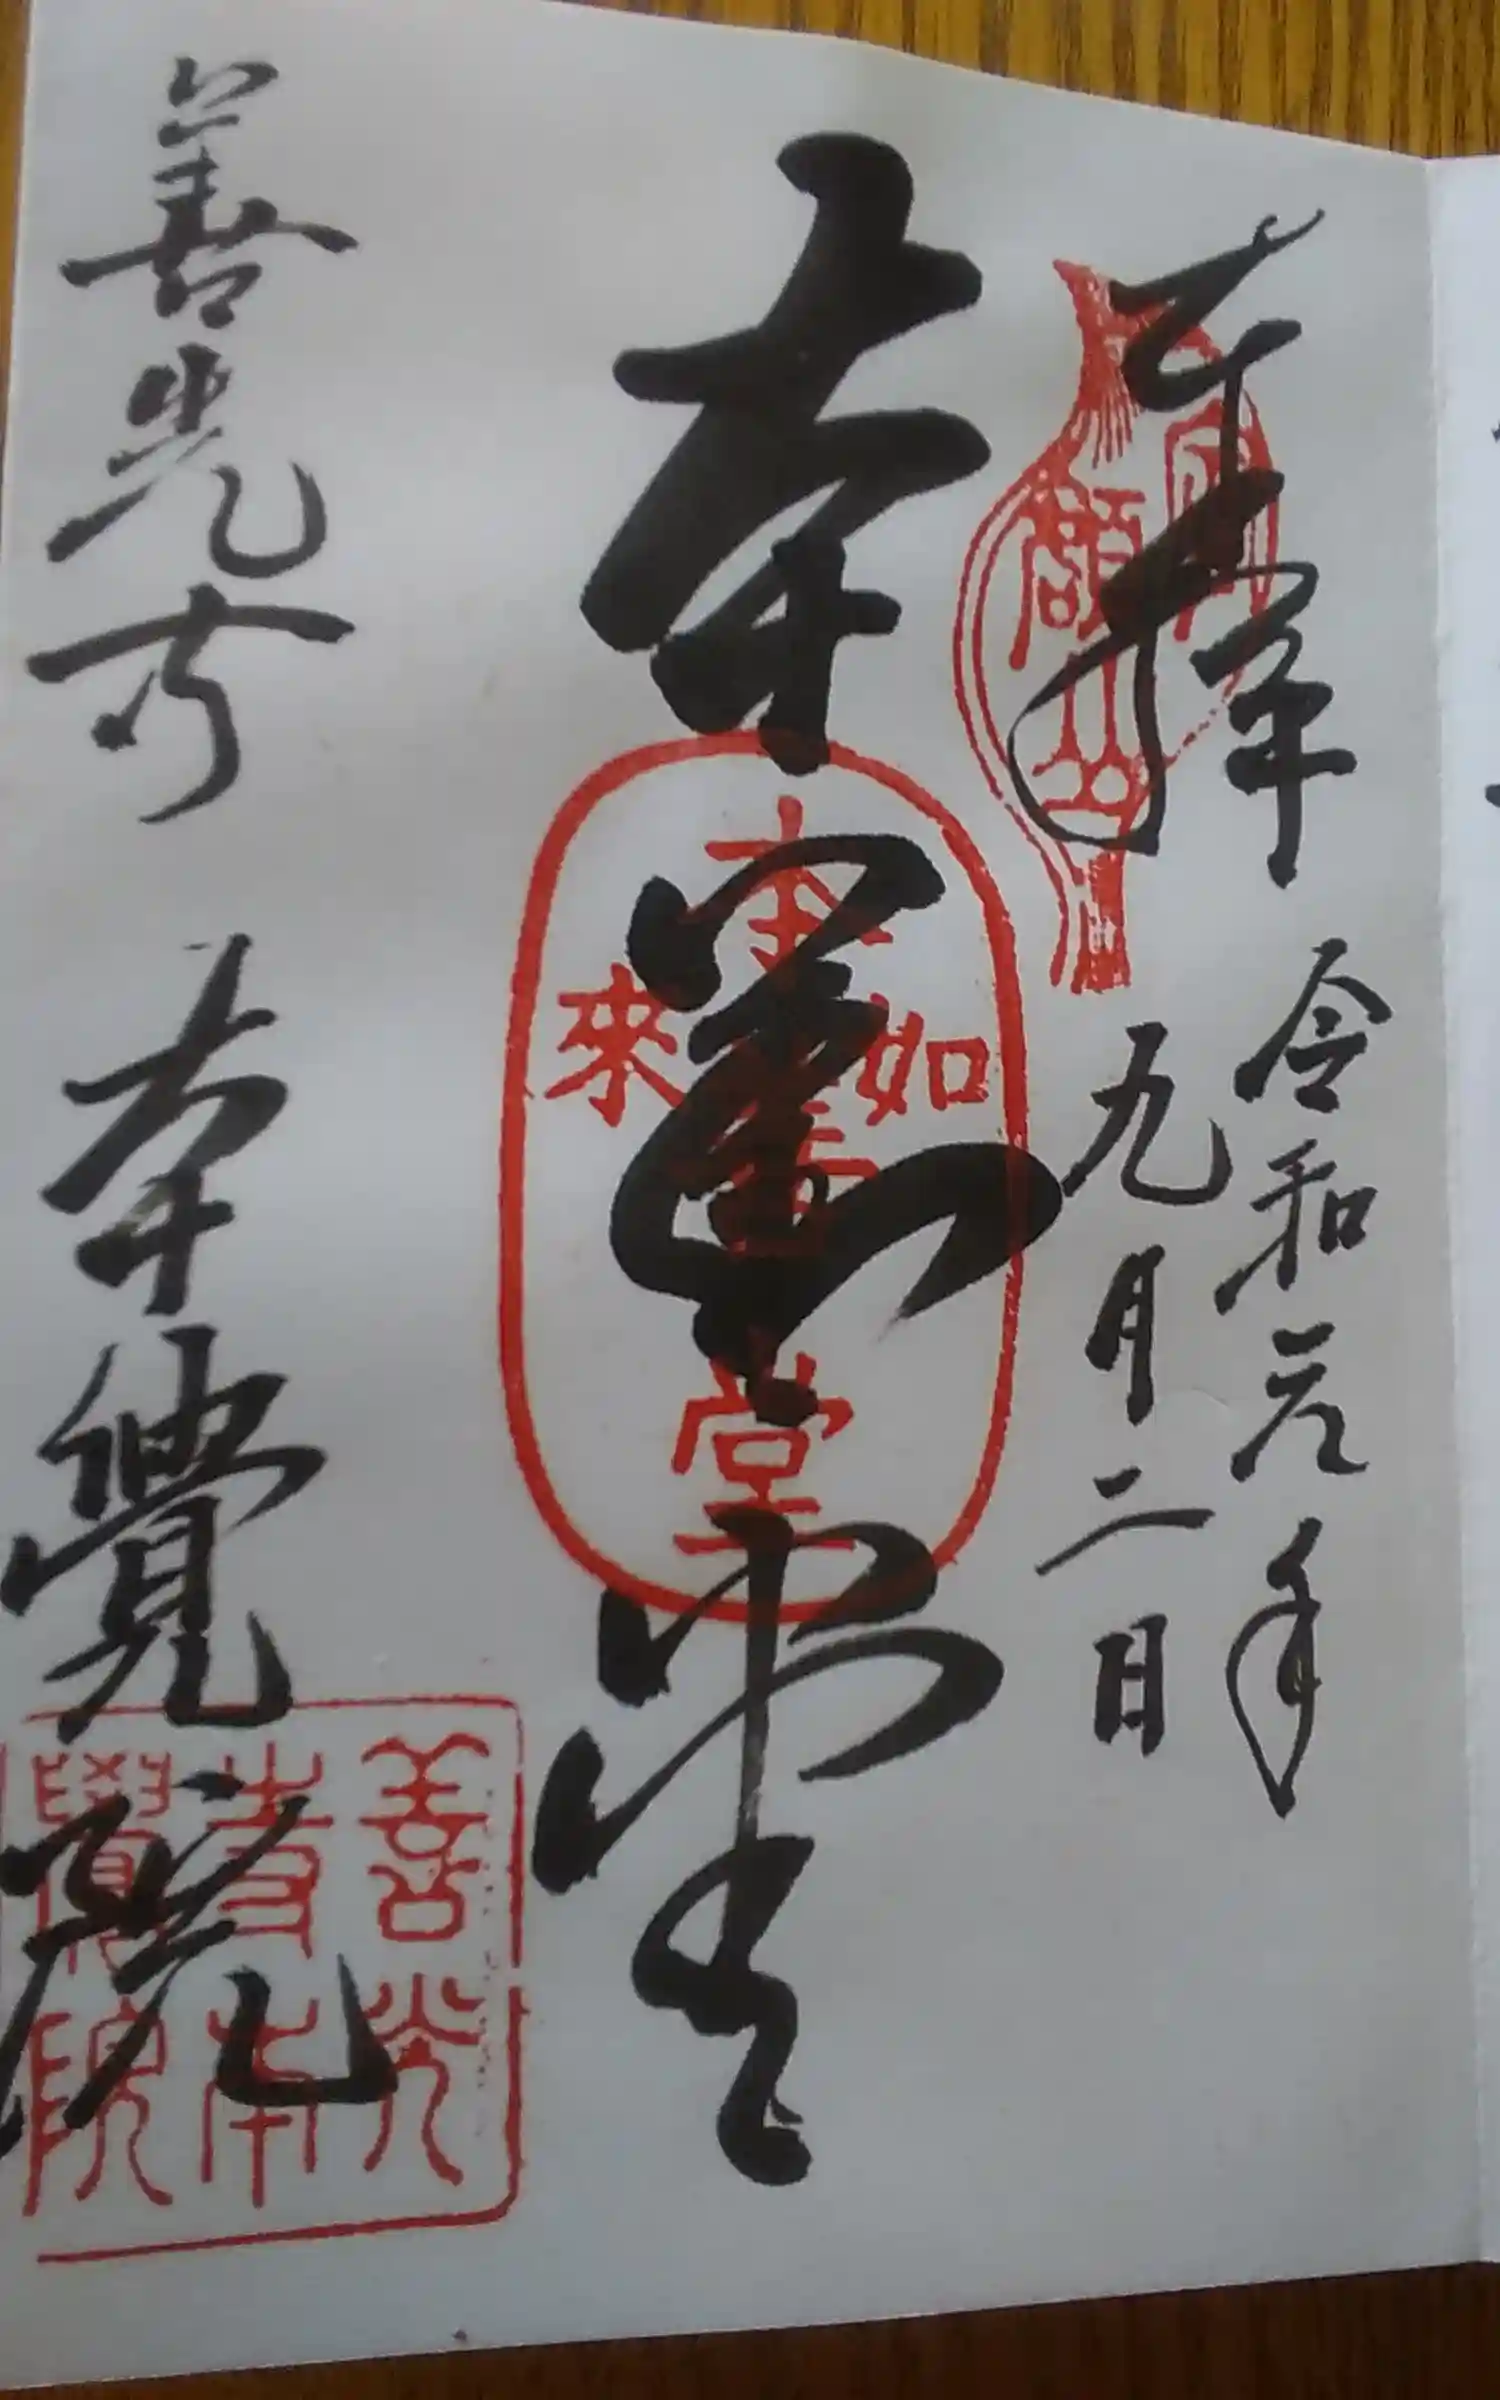 奉拝
令和元年
九月二日
定額山
本善堂
如來
善光寺 本覺院
善光寺本覺院